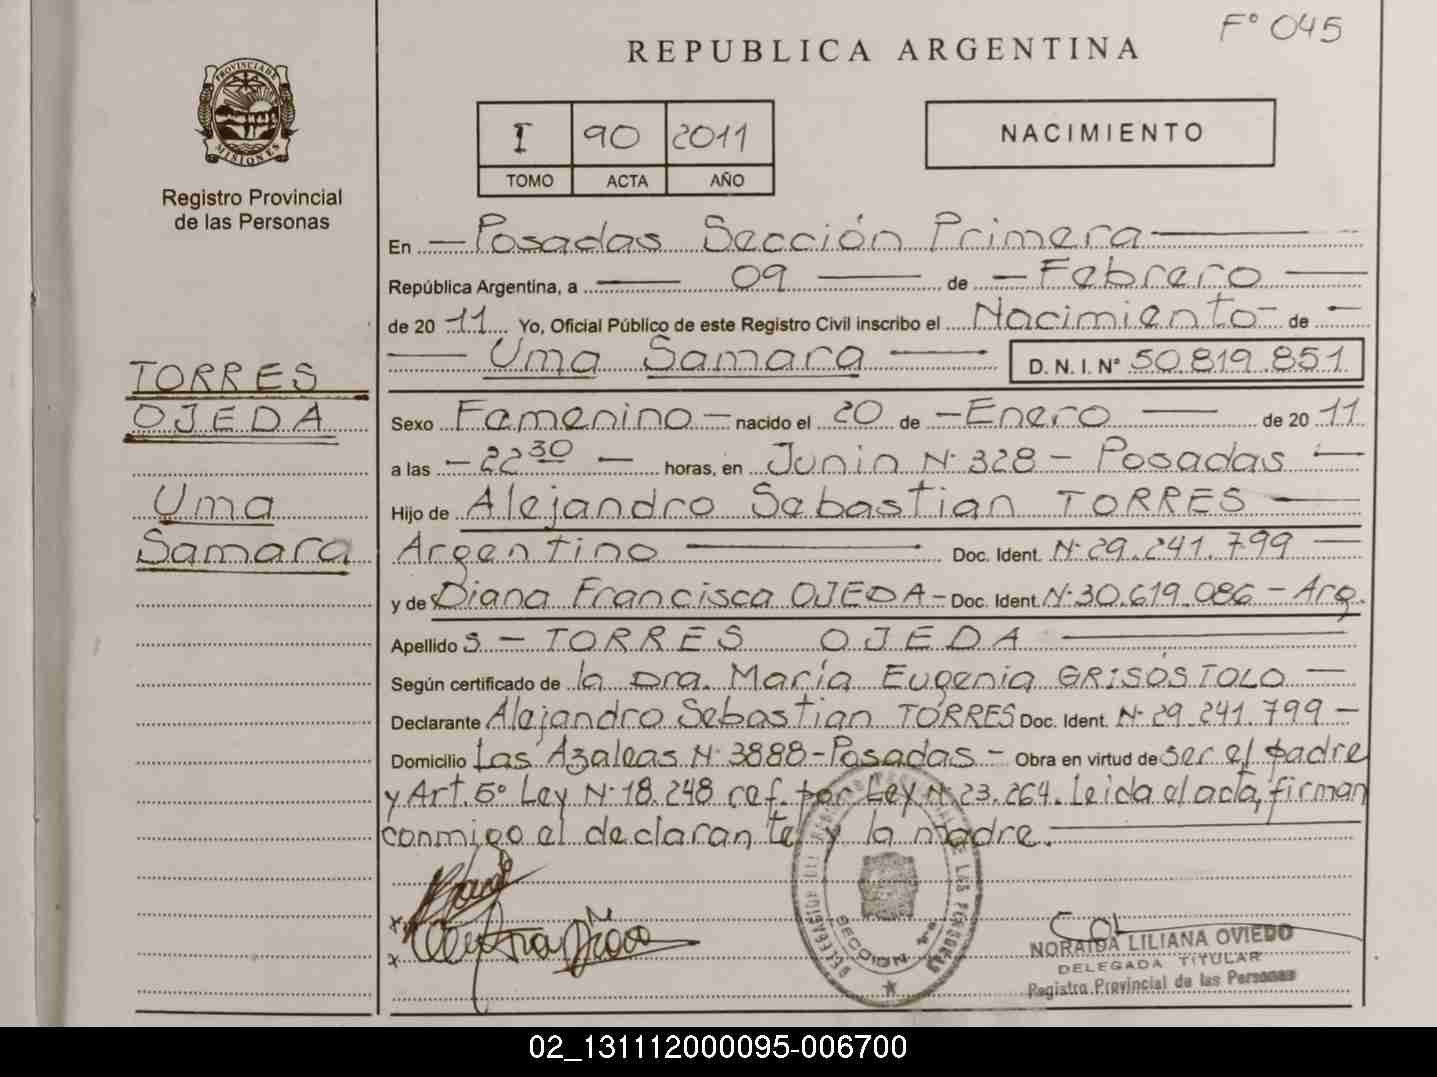 Fº 045
REPUBLICA ARGENTINA
PROVINCIA DE MISIONES
I 90 2011
TOMO ACTA AÑO
NACIMIENTO
Registro Provincial
de las Personas
En Posadas Sección Primera
República Argentina, a 09 de Febrero
de 2011 Yo, Oficial Público de este Registro Civil inscribo el Nacimiento de
Uma Samara D. N. I. Nº 50.819.851
TORRES
OJEDA
Uma
Samara
Sexo Femenino nacido el 20 de Enero de 2011
a las 22 30 horas, en Junin Nº 328 - Posadas
Hijo de Alejandro Sebastian TORRES
Argentino Doc. Ident. Nº 29.241.799
y de Diana Francisca OJEDA - Doc. Ident. Nº 30.619.086 - Arg.
Apellido s - TORRES OJEDA
Según certificado de la Dra. María Eugenia GRISÓSTOLO
Declarante Alejandro Sebastian TORRES Doc. Ident. Nº 29.241.799 -
Domicilio Las Azaleas Nº 3888 - Posadas - Obra en virtud de ser el padre
y Art. 5º Ley Nº 18.248 ref. por Ley Nº 23.264. Leida el acta, firman
conmigo el declarante y la madre.
DELEGACION DEL REGISTRO PROVINCIAL DE LAS PERSONAS
SECCION 1ª
NORAIDA LILIANA OVIEDO
DELEGADA TITULAR
Registro Provincial de las Personas
02_131112000095-006700